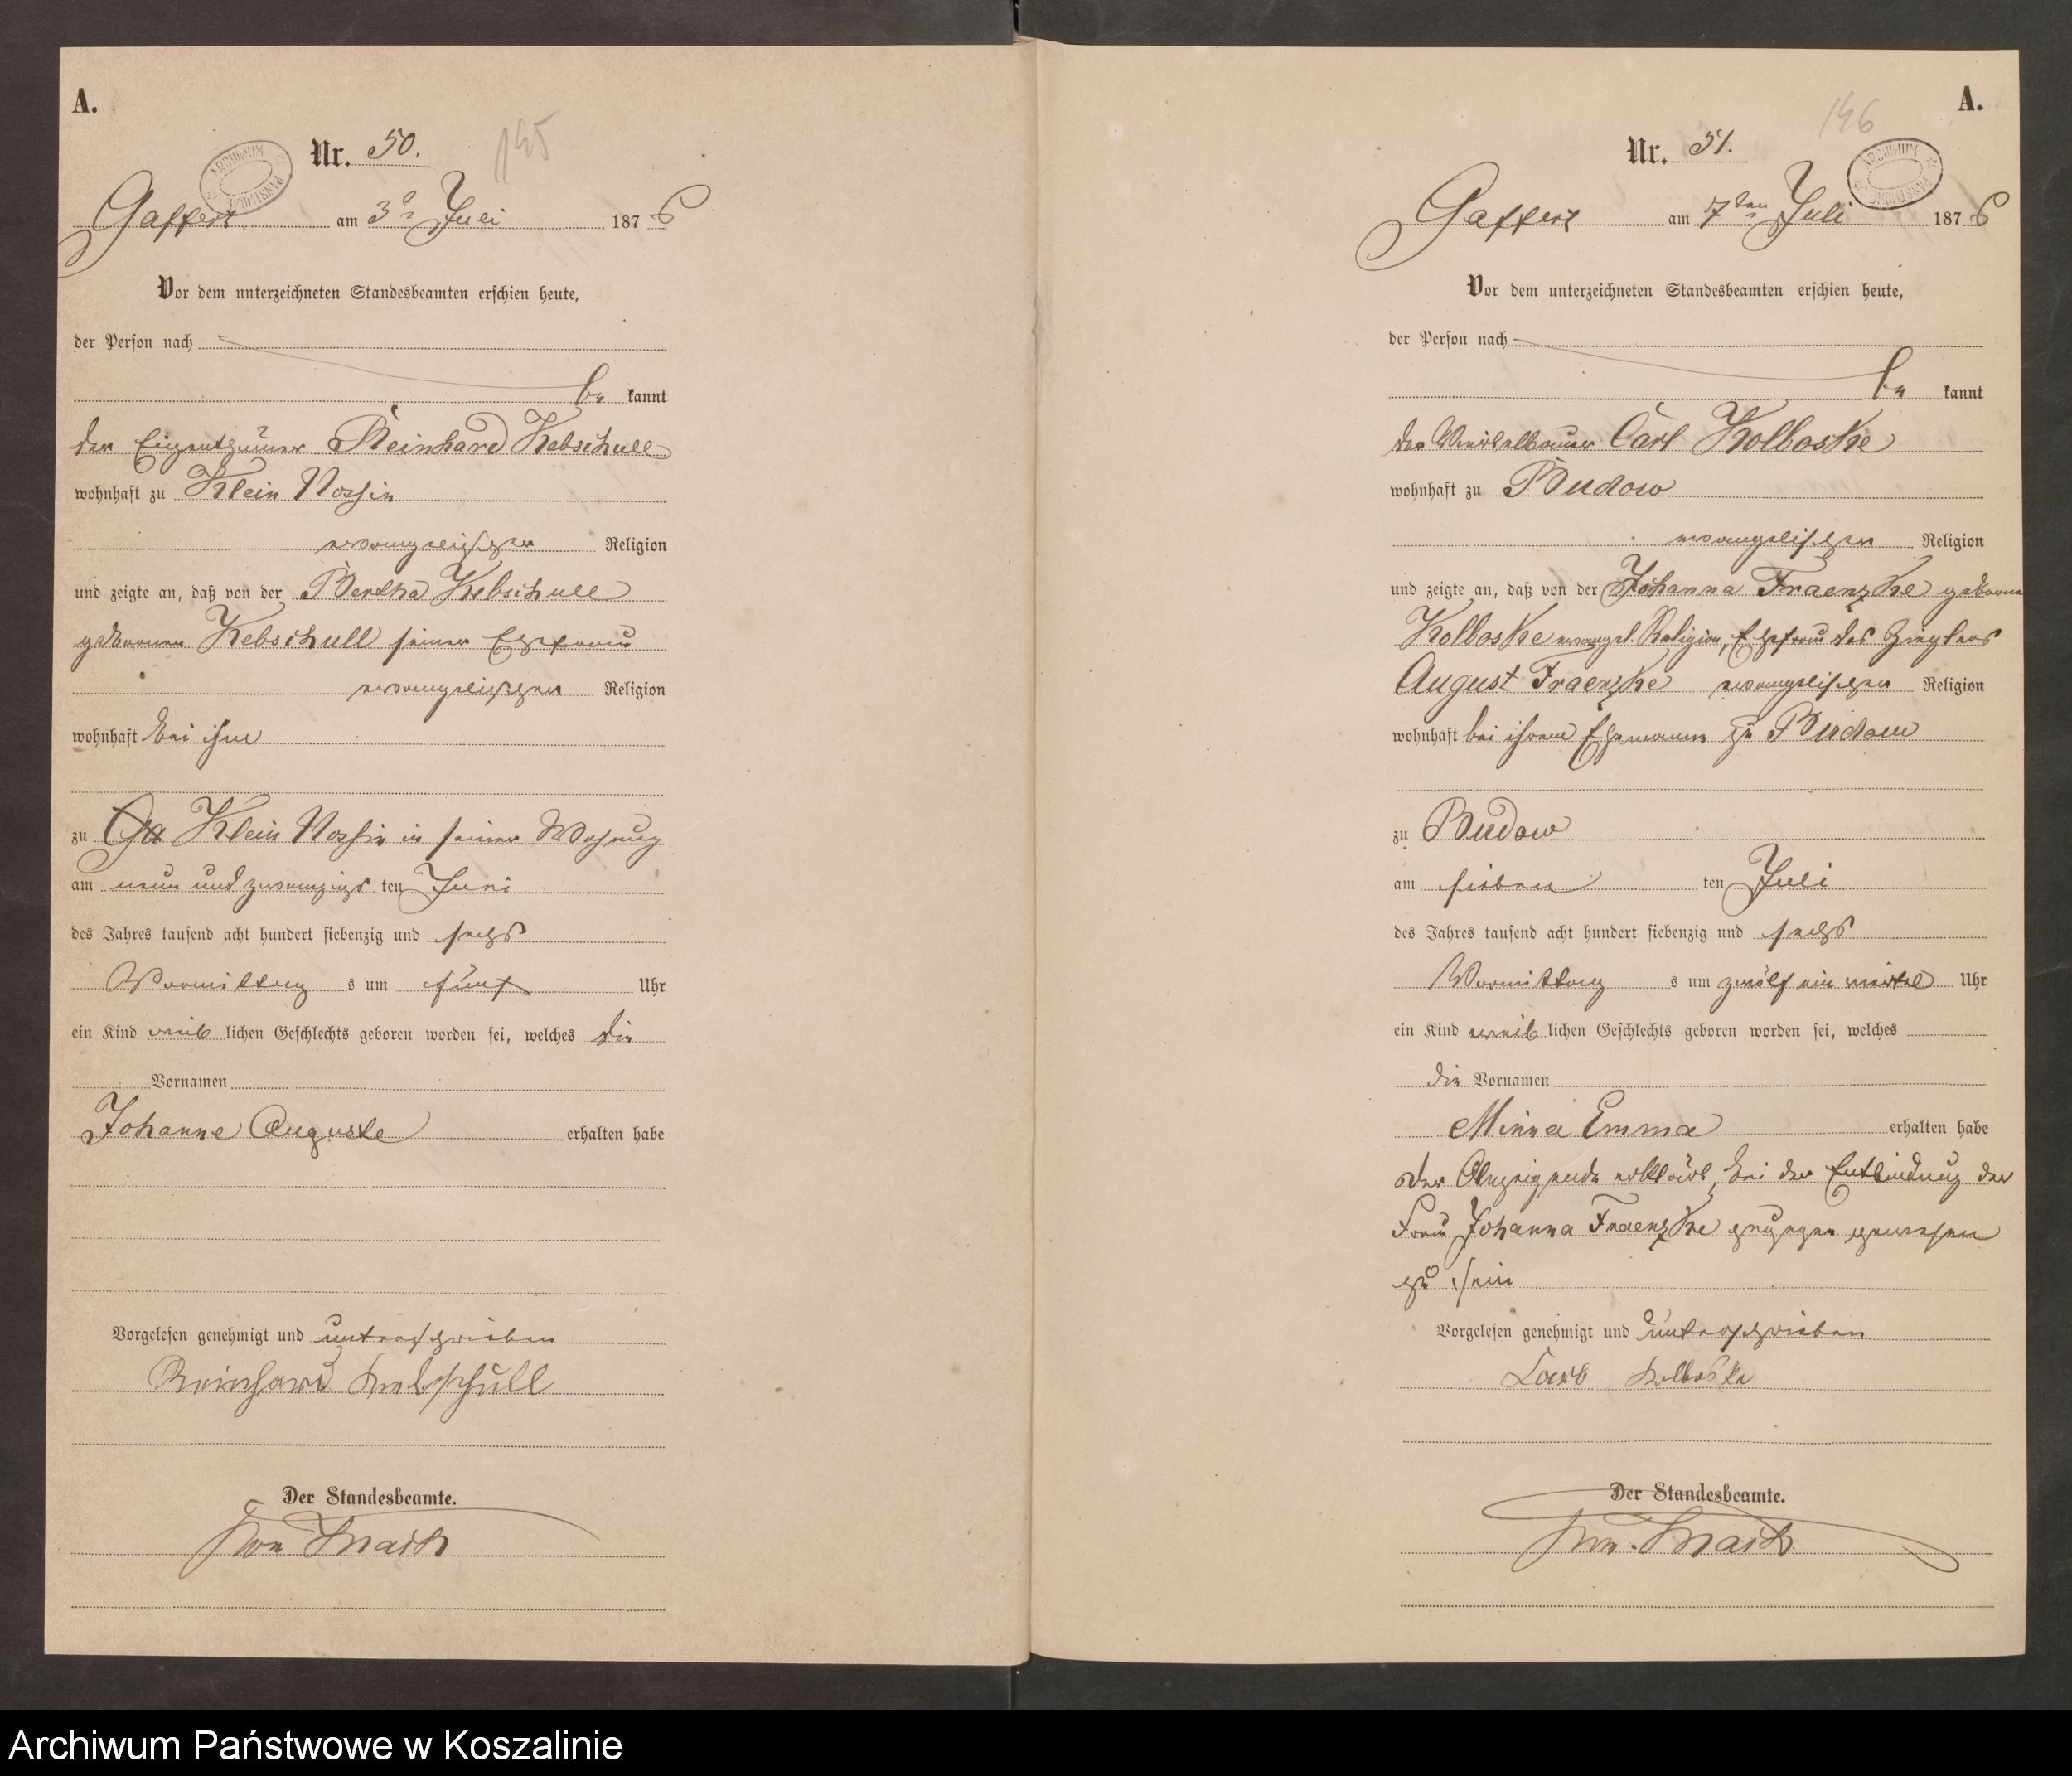 A.
Nr. 50.
145
ARCHIWUM PAŃSTWOWE
Gaffert am 3t Juli 1876
Vor dem unterzeichneten Standesbeamten erschien heute,
der Person nach
be kannt
der Eigenthümer Reinhard Kebschull
wohnhaft zu Klein Nossin
evangelischer Religion
und zeigte an, daß von der Bertha Kebschull
geborenen Kebschull seiner Ehefrau
evangelischen Religion
wohnhaft bei ihm
zu Ga Klein Nossin in seiner Wohnung
am neun und zwanzigs ten Juni
des Jahres tausend acht hundert siebenzig und sechs
Vormittag s um fünf Uhr
ein Kind weib lichen Geschlechts geboren worden sei, welches die
Vornamen
Johanne Auguste erhalten habe
Vorgelesen genehmigt und unterschrieben
Reinhard Kebschull
Der Standesbeamte.
A.
146
Nr. 51.
ARCHIWUM PAŃSTWOWE
Gaffert am 7ten Juli 1876
Vor dem unterzeichneten Standesbeamten erschien heute,
der Person nach
be kannt
der Viertelbauer Carl Kolboske
wohnhaft zu Budow
evangelischer Religion
und zeigte an, daß von der Johanna Fraenzke geborene
Kolboske evangel. Religion, Ehefrau des Zieglers
August Fraenzke evangelischer Religion
wohnhaft bei ihrem Ehemanne zu Budow
zu Budow
am sieben ten Juli
des Jahres tausend acht hundert siebenzig und sechs
Vormittag s um zwölf ein viertel Uhr
ein Kind weib lichen Geschlechts geboren worden sei, welches
die Vornamen
Minna Emma erhalten habe
Der Anzeigende erklärt, bei der Entbindung der
Frau Johanna Fraenzke zugegen gewesen
zu sein
Vorgelesen genehmigt und unterschrieben
Carl Kolboske
Der Standesbeamte.
Archiwum Państwowe w Koszalinie